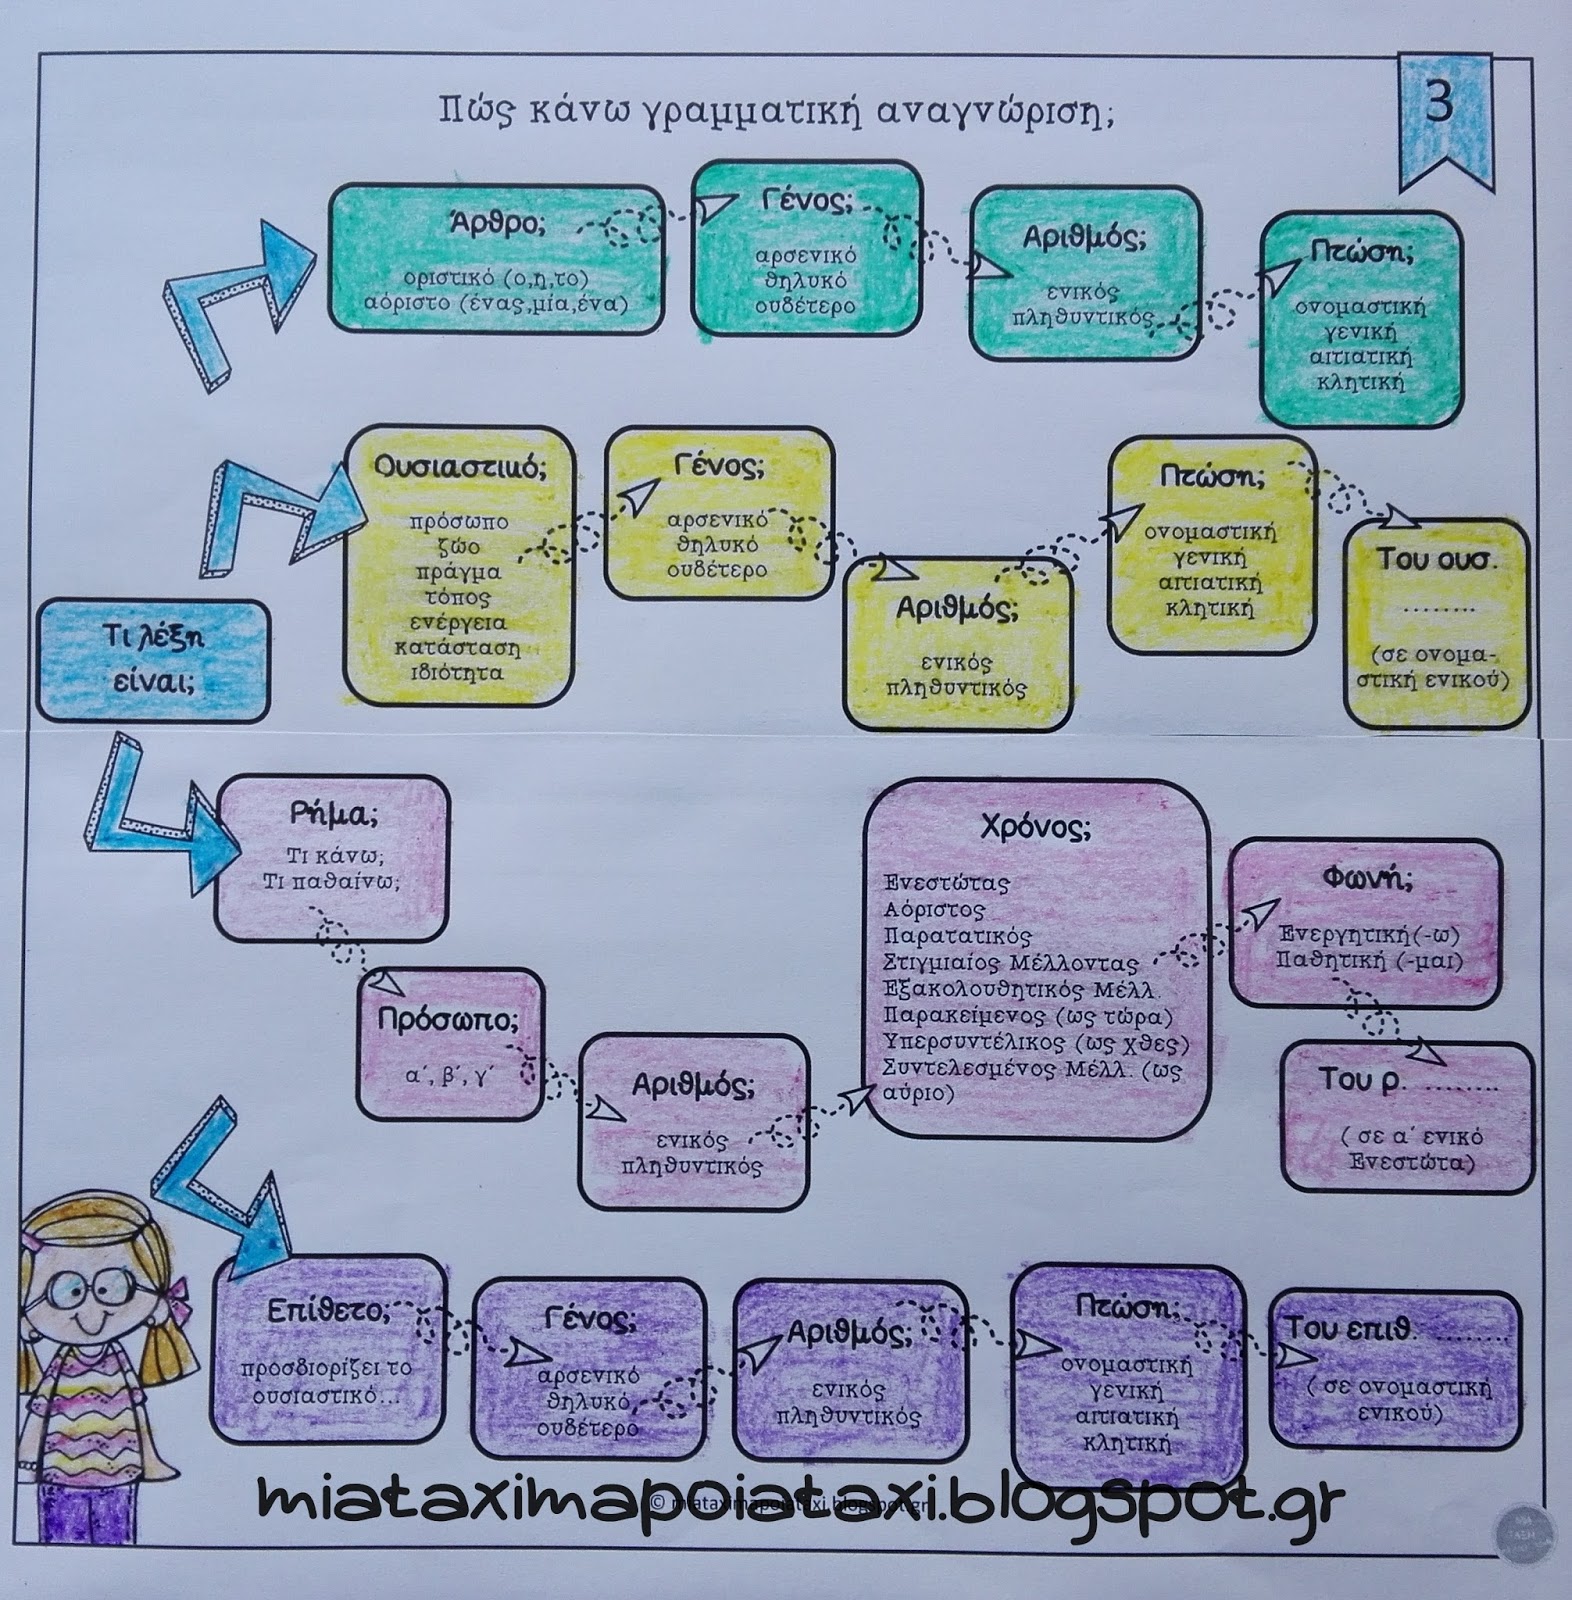 3
Πώς κάνω γραμματική αναγνώριση;
Άρθρο;
οριστικό (ο,η,το)
αόριστο (ένας,μία,ένα)
Γένος;
αρσενικό
θηλυκό
ουδέτερο
Αριθμός;
ενικός
πληθυντικός
Πτώση;
ονομαστική
γενική
αιτιατική
κλητική
Τι λέξη
είναι;
Ουσιαστικό;
πρόσωπο
ζώο
πράγμα
τόπος
ενέργεια
κατάσταση
ιδιότητα
Γένος;
αρσενικό
θηλυκό
ουδέτερο
Αριθμός;
ενικός
πληθυντικός
Πτώση;
ονομαστική
γενική
αιτιατική
κλητική
Του ουσ.
........
(σε ονομα-
στική ενικού)
Ρήμα;
Τι κάνω;
Τι παθαίνω;
Πρόσωπο;
α΄, β΄, γ΄
Αριθμός;
ενικός
πληθυντικός
Χρόνος;
Ενεστώτας
Αόριστος
Παρατατικός
Στιγμιαίος Μέλλοντας
Εξακολουθητικός Μέλλ.
Παρακείμενος (ως τώρα)
Υπερσυντέλικος (ως χθες)
Συντελεσμένος Μέλλ. (ως
αύριο)
Φωνή;
Ενεργητική(-ω)
Παθητική (-μαι)
Του ρ. ........
( σε α΄ ενικό
Ενεστώτα)
Επίθετο;
προσδιορίζει το
ουσιαστικό...
Γένος;
αρσενικό
θηλυκό
ουδέτερο
Αριθμός;
ενικός
πληθυντικός
Πτώση;
ονομαστική
γενική
αιτιατική
κλητική
Του επιθ. ........
( σε ονομαστική
ενικού)
© miataximapoiataxi.blogspot.gr
miataximapoiataxi.blogspot.gr